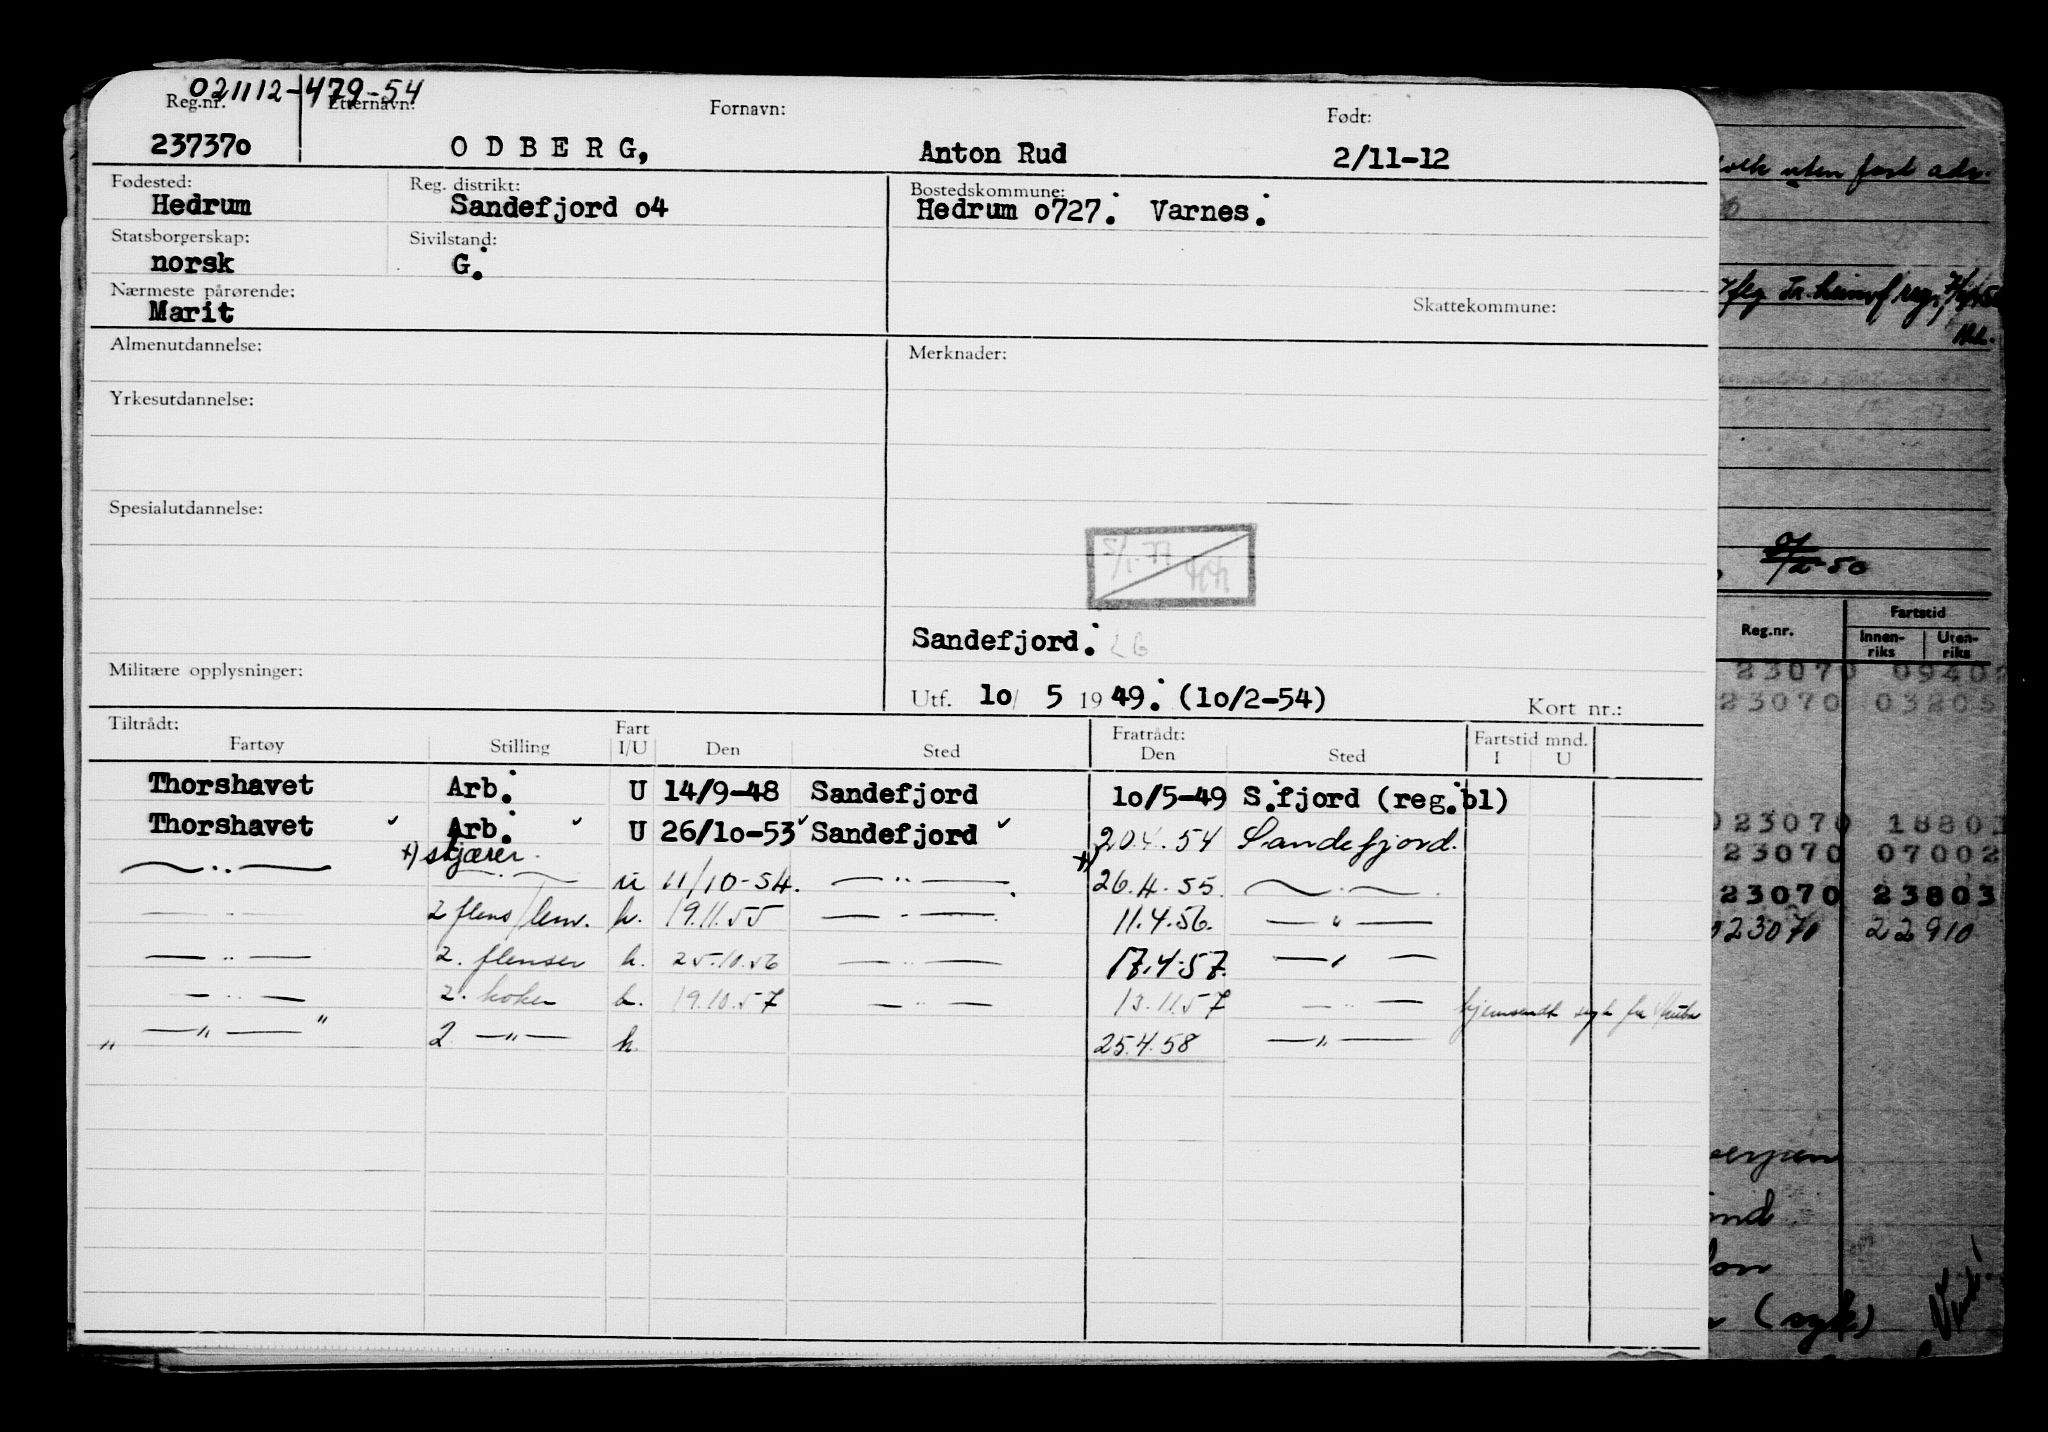 021112-479-54
Reg.nr. Etternavn: Fornavn: Født:
237370 ODBERG, Anton Rud 2/11-12
Fødested: Reg. distrikt: Bostedskommune:
Hedrum Sandefjord o4 Hedrum o727. Varnes.
Statsborgerskap: Sivilstand:
norsk G.
Nærmeste pårørende: Skattekommune:
Marit
Almenutdannelse: Merknader:
Yrkesutdannelse:
Spesialutdannelse:
5/1-77
Sandefjord. LG
Militære opplysninger:
Utf. 1o/ 5 1949. (1o/2-54) Kort nr.:
Tiltrådt: Fratrådt:
Fartøy Stilling Fart I/U Den Sted Den Sted Fartstid mnd. I U
Thorshavet Arb. U 14/9-48 Sandefjord 1o/5-49 S.fjord (reg.bl)
Thorshavet Arb. U 26/1o-53 Sandefjord 20.4.54 Sandefjord.
—..— +) skjærer. —..— u 11/10-54. —..— +) 26.4.55. —..—
—..— 2 flens/lem. u. 19.11.55 —..— 11.4.56. —"—
—..— 2. flenser u. 25.10.56 —..— 17.4.57. —"—
—..— 2. koker u. 19.10.57 —..— 13.11.57 —..— hjemsendt syk fra
" —"— " 2 —"— u. 25.4.58 —"—
uten fast adr.
50
Reg.nr. Fartstid
Innen-riks Uten-riks
23070 0940
23070 03205
23070 1880
23070 07002
23070 23803
23070 22910
(syk)